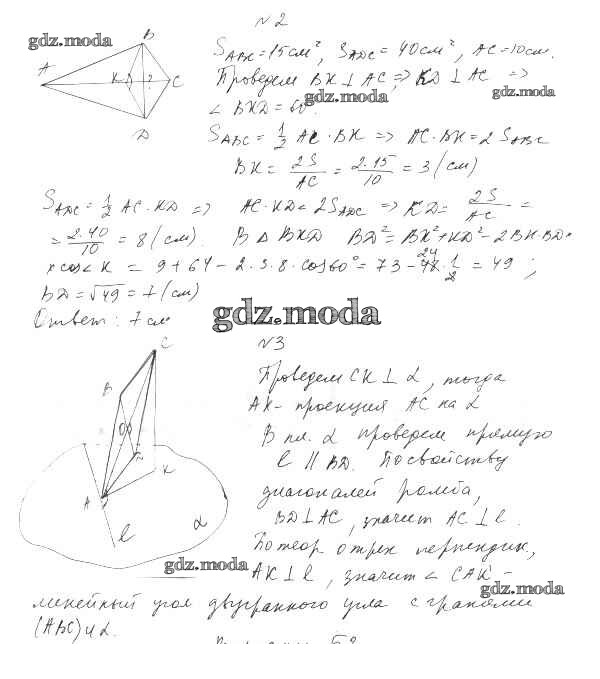 №2
gdz.moda
B
A
K
?
C
D
S_ABC = 15 см², S_ADC = 40 см², AC = 10 см.
Проведем BK ⊥ AC => KD ⊥ AC =>
gdz.moda
gdz.moda
∠ BKD = 60°
S_ABC = 1/2 AC · BK => AC · BK = 2 S_ABC
BK = 2S/AC = 2·15/10 = 3 (см)
S_ADC = 1/2 AC · KD => AC · KD = 2S_ADC => KD = 2S/AC =
= 2·40/10 = 8 (см). В Δ BKD BD² = BK² + KD² - 2BK·BD·
x cos∠K = 9 + 64 - 2·3·8·cos60° = 73 - 48·1/2 = 49;
24
BD = √49 = 7 (см)
Ответ: 7 см
gdz.moda
№3
C
B
O
K
A
l
α
Проведем CK ⊥ α, тогда
AK - проекция AC на α
В пл. α проведем прямую
l ∥ BD. По свойству
диагоналей ромба,
BD ⊥ AC, значит AC ⊥ l.
По теор о трех перпендик,
gdz.moda
AK ⊥ l, значит ∠ CAK -
gdz.moda
линейный угол двугранного угла с гранями
(ABC) и α.